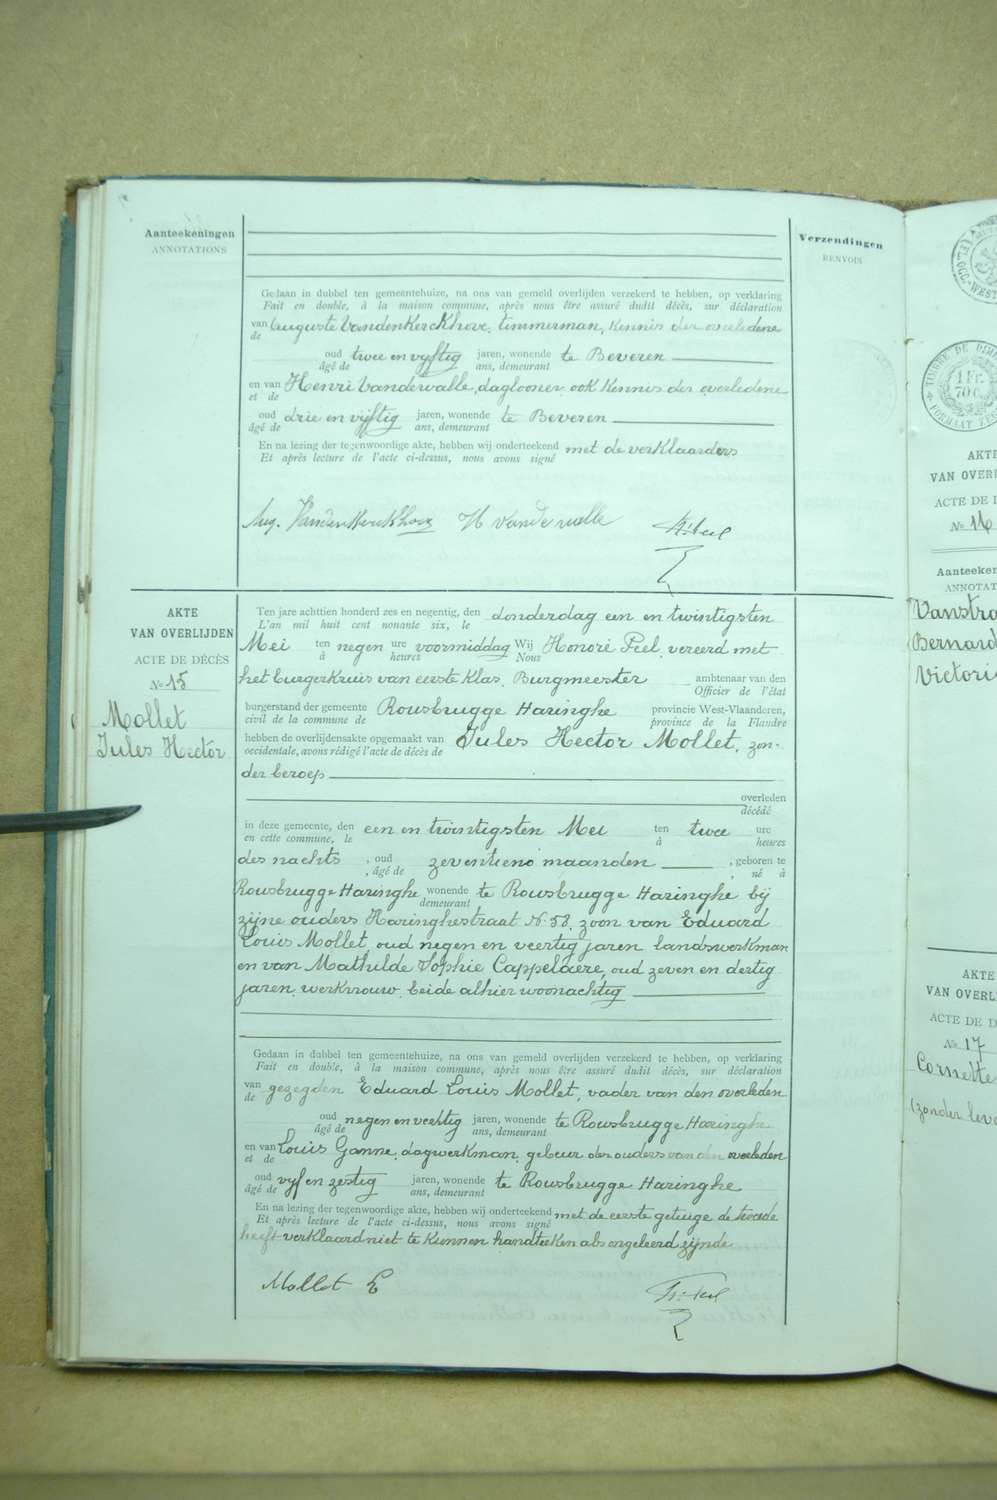 Aanteekeningen
ANNOTATIONS
Verzendingen
RENVOIS
Gedaan in dubbel ten gemeentehuize, na ons van gemeld overlijden verzekerd te hebben, op verklaring
Fait en double, à la maison commune, après nous être assuré dudit décès, sur déclaration
van Auguste Vandenkerckhove, timmerman, kennis der overledene
de
oud twee en vyftig jaren, wonende te Beveren
âgé de ans, demeurant
en van Henri Vandewalle, daglooner, ook kennis der overledene
et de
oud drie en vyftig jaren, wonende te Beveren
âgé de ans, demeurant
En na lezing der tegenwoordige akte, hebben wij onderteekend met de verklaarders
Et après lecture de l'acte ci-dessus, nous avons signé
Aug. Vandenkerckhove H Vandewalle
AKTE
VAN OVERLIJDEN
ACTE DE DÉCÈS
No 15
Mollet
Jules Hector
Ten jare achttien honderd zes en negentig, den donderdag een en twintigsten
L'an mil huit cent nonante six, le
Mei ten negen ure voormiddag Wij Honoré Peel, vereerd met
à heures Nous
het burgerkruis van eerste klas, Burgmeester ambtenaar van den
Officier de l'état
burgerstand der gemeente Rousbrugge Haringhe provincie West-Vlaanderen,
civil de la commune de province de la Flandre
hebben de overlijdensakte opgemaakt van Jules Hector Mollet, zon-
occidentale, avons rédigé l'acte de décès de
der beroep
overleden
décédé
in deze gemeente, den een en twintigsten Mei ten twee ure
en cette commune, le à heures
des nachts, oud zeventiend maanden, geboren te
, âgé de , né à
Rousbrugge Haringhe wonende te Rousbrugge Haringhe bij
demeurant
zijne ouders Haringhestraat No 58, zoon van Eduard
Louis Mollet, oud negen en veertig jaren, landswerkman
en van Mathilde Sophie Cappelaere, oud zeven en dertig
jaren, werkvrouw, beide alhier woonachtig
Gedaan in dubbel ten gemeentehuize, na ons van gemeld overlijden verzekerd te hebben, op verklaring
Fait en double, à la maison commune, après nous être assuré dudit décès, sur déclaration
van gezegden Eduard Louis Mollet, vader van den overleden
de
oud negen en veertig jaren, wonende te Rousbrugge Haringhe
âgé de ans, demeurant
en van Louis Ganne, dagwerkman, gebuur der ouders van den overleden
et de
oud vyf en zestig jaren, wonende te Rousbrugge Haringhe
âgé de ans, demeurant
En na lezing der tegenwoordige akte, hebben wij onderteekend met de eerste getuige de tweede
Et après lecture de l'acte ci-dessus, nous avons signé
heeft verklaard niet te kunnen handteeken als ongeleerd zijnde
Mollet E
TIMBRE DE DIM
1 Fr.
70 c.
FORMAT
AKTE
VAN OVERL
ACTE DE D
No 16
Aanteeken
ANNOTAT
Vanstra
Bernard
Victori
AKTE
VAN OVERL
ACTE DE D
No 17
Cornette
(zonder leve